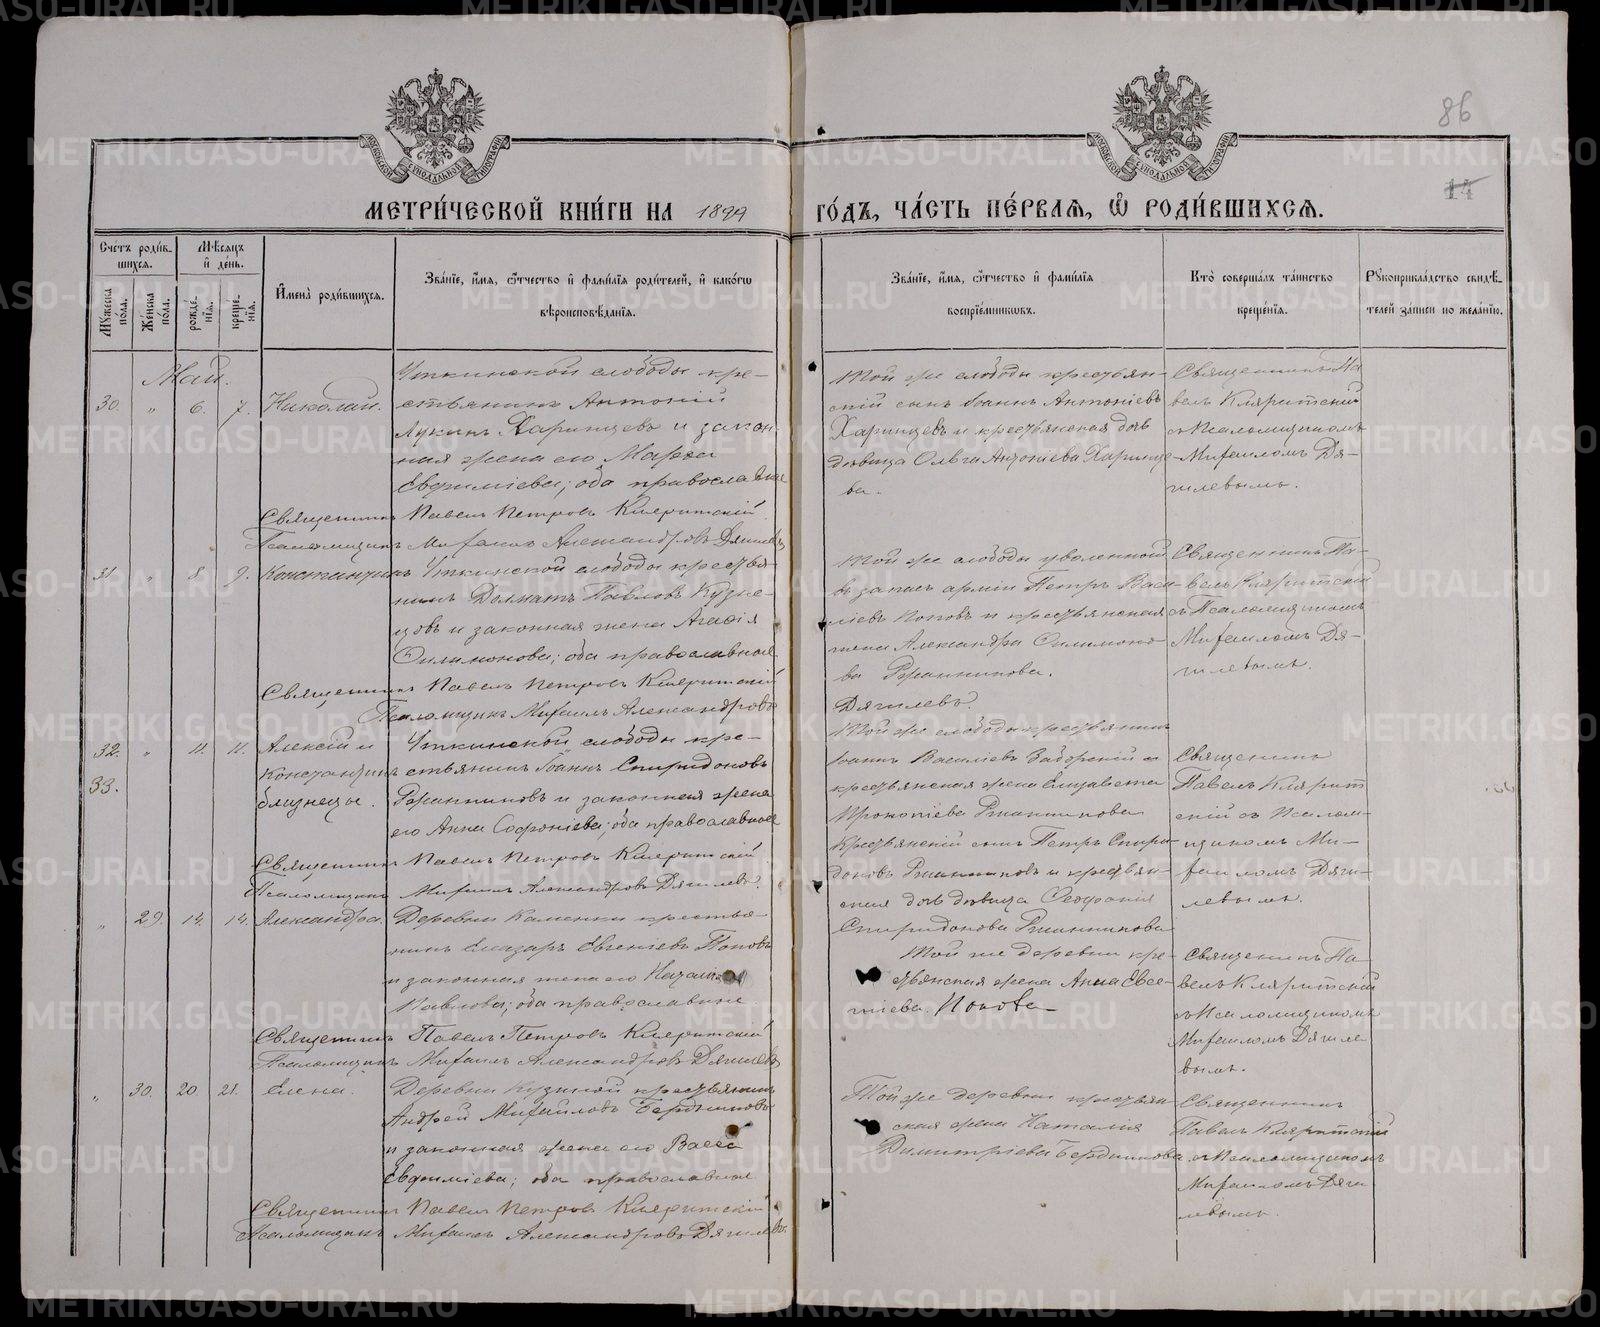 86
14
МЕТРИ́ЧЕСКОЙ КНИ́ГИ НА 1899 ГО́ДЪ, ЧА́СТЬ ПЕ́РВАЯ, Ѽ РОДИ́ВШИХСЯ.
Сче́тъ роди́вшихся.
Му́жеска по́ла.
Же́нска по́ла.
Мѣ́сяцъ и де́нь.
рожде́нїя.
креще́нїя.
Имена̀ роди́вшихся.
Зва́нїе, и́мя, ѻ́тчество и фами́лїя роди́телей, и како́гѡ вѣроисповѣ́данїя.
Зва́нїе, и́мя, ѻ́тчество и фами́лїя воспрїе́мниковъ.
Кто̀ соверша́лъ та́инство креще́нїя.
Рꙋкоприкла́дство свидѣ́телей за́писи по жела́нїю.
Май.
30. " 6. 7. Николай.
Уткинской слободы кре-
стьянинъ Антоній
Лукинъ Харинцевъ и закон-
ная жена его Марѳа
Евѳиміева; оба православные
Той же слободы крестьян-
скій сынъ Іоаннъ Антоніевъ
Харинцевъ и крестьянская дочь
дѣвица Ольга Антоніева Харинце-
ва.
Священникъ Па-
велъ Кляритскій
съ Псаломщикомъ
Михаиломъ Дя-
гилевымъ.
Священникъ Павелъ Петровъ Кляритскій
Псаломщикъ Михаилъ Александровъ Дягилевъ
31. " 8. 9. Константинъ
Уткинской слободы крестья-
нинъ Долматъ Павловъ Кузне-
цовъ и законная жена Агафія
Филимонова; оба православные
Той же слободы уволенной
въ запасъ арміи Петръ Васи-
ліевъ Поповъ и крестьянская
жена Александра Филимоно-
ва Ржанникова.
Священникъ Па-
велъ Кляритскій
съ Псаломщикомъ
Михаиломъ Дя-
гилевымъ.
Священникъ Павелъ Петровъ Кляритскій
Псаломщикъ Михаилъ Александровъ Дягилевъ.
32. " 11. 11. Алексій и
33. Константинъ
близнецы.
Уткинской слободы кре-
стьянинъ Іоаннъ Спиридоновъ
Ржанниковъ и законная жена
его Анна Софоніева; оба православные
Той же слободы крестьянинъ
Іоаннъ Василіевъ Заборскій и
крестьянская жена Елизавета
Прокопіева Ржанникова
Крестьянскій сынъ Петръ Спири-
доновъ Ржанниковъ и крестьян-
ская дочь дѣвица Ѳеофанія
Спиридонова Ржанникова
Священникъ
Павелъ Клярит
скій съ Псалом-
щикомъ Ми-
хаиломъ Дяги-
левымъ.
Священникъ Павелъ Петровъ Кляритскій
Псаломщикъ Михаилъ Александровъ Дягилевъ.
" 29. 14. 14. Александра.
Деревни Каменки крестья-
нинъ Елазаръ Евгеніевъ Поповъ
и законная жена его Наталія
Павлова; оба православные
Той же деревни кре-
стьянская жена Анна Евсе-
гніева. Попова
Священникъ Па-
велъ Кляритскій
съ Псаломщикомъ
Михаиломъ Дягиле-
вымъ.
Священникъ Павелъ Петровъ Кляритскій
Псаломщикъ Михаилъ Александровъ Дягилевъ
" 30. 20. 21. Елена.
Деревни Кузиной крестьянинъ
Андрей Михайловъ Бердниковъ
и законная жена его Васса
Евфиміева; оба православные
Той же деревни крестьян-
ская жена Наталія
Димитріева Бердникова
Священникъ
Павелъ Кляритскій
съ Псаломщикомъ
Михаиломъ Дяги
левымъ.
Священникъ Павелъ Петровъ Кляритскій
Псаломщикъ Михаилъ Александровъ Дягилевъ.
METRIKI.GASO-URAL.RU